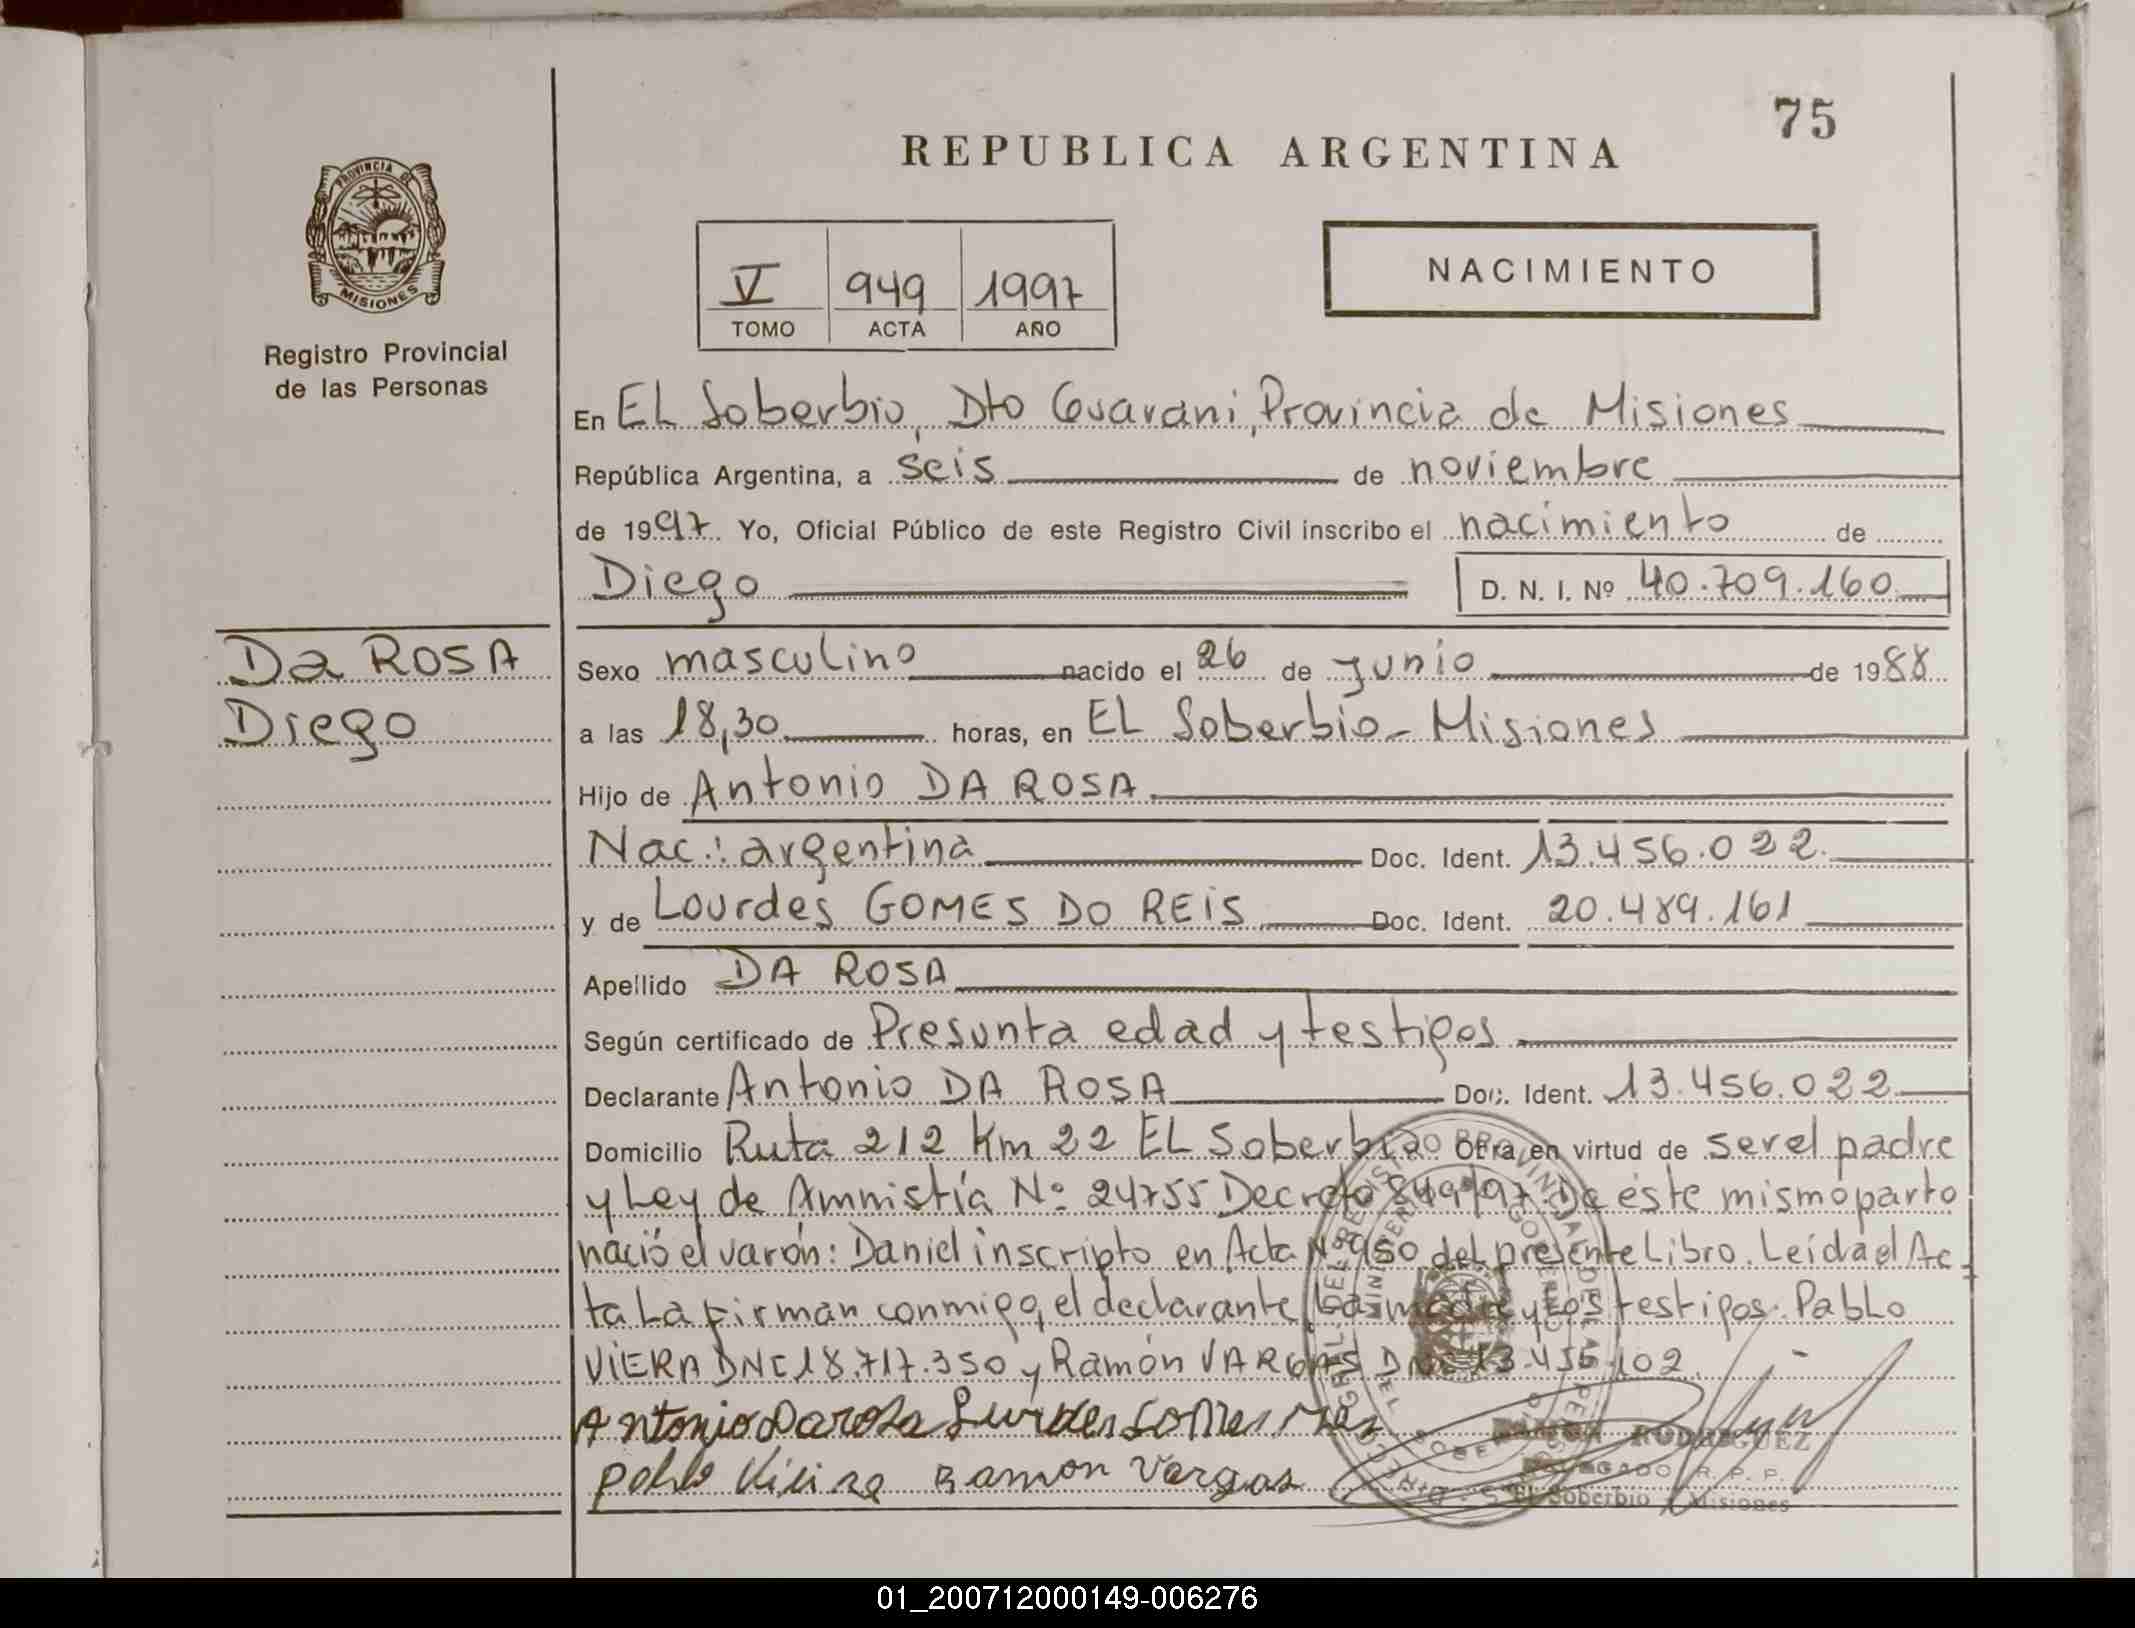 75
REPUBLICA ARGENTINA
PROVINCIA DE
MISIONES
Registro Provincial
de las Personas
V 949 1997
TOMO ACTA AÑO
NACIMIENTO
En EL Soberbio, Dto Guarani, Provincia de Misiones
República Argentina, a seis de noviembre
de 1997 Yo, Oficial Público de este Registro Civil inscribo el nacimiento de
Diego D. N. I. Nº 40.709.160
Da ROSA
Diego
Sexo masculino nacido el 26 de junio de 1988
a las 18,30 horas, en EL Soberbio - Misiones
Hijo de Antonio DA ROSA
Nac.: argentina Doc. Ident. 13.456.022
y de Lourdes GOMES DO REIS Doc. Ident. 20.489.161
Apellido DA ROSA
Según certificado de Presunta edad y testigos
Declarante Antonio DA ROSA Doc. Ident. 13.456.022
Domicilio Ruta 212 Km 22 EL Soberbio Obra en virtud de ser el padre
y Ley de Amnistía Nº 24755 Decreto 849/97. De este mismo parto
nació el varón: Daniel inscripto en Acta Nº 950 del presente Libro. Leída el Ac-
ta La firman conmigo, el declarante, la madre y los testigos. Pablo
VIERA DNI 18.717.350 y Ramón VARGAS DNI 13.455.102
Antonio Darosa
Ramon Vargas
RODRIGUEZ
DELEGADO R. P. P.
El Soberbio - Misiones
01_200712000149-006276